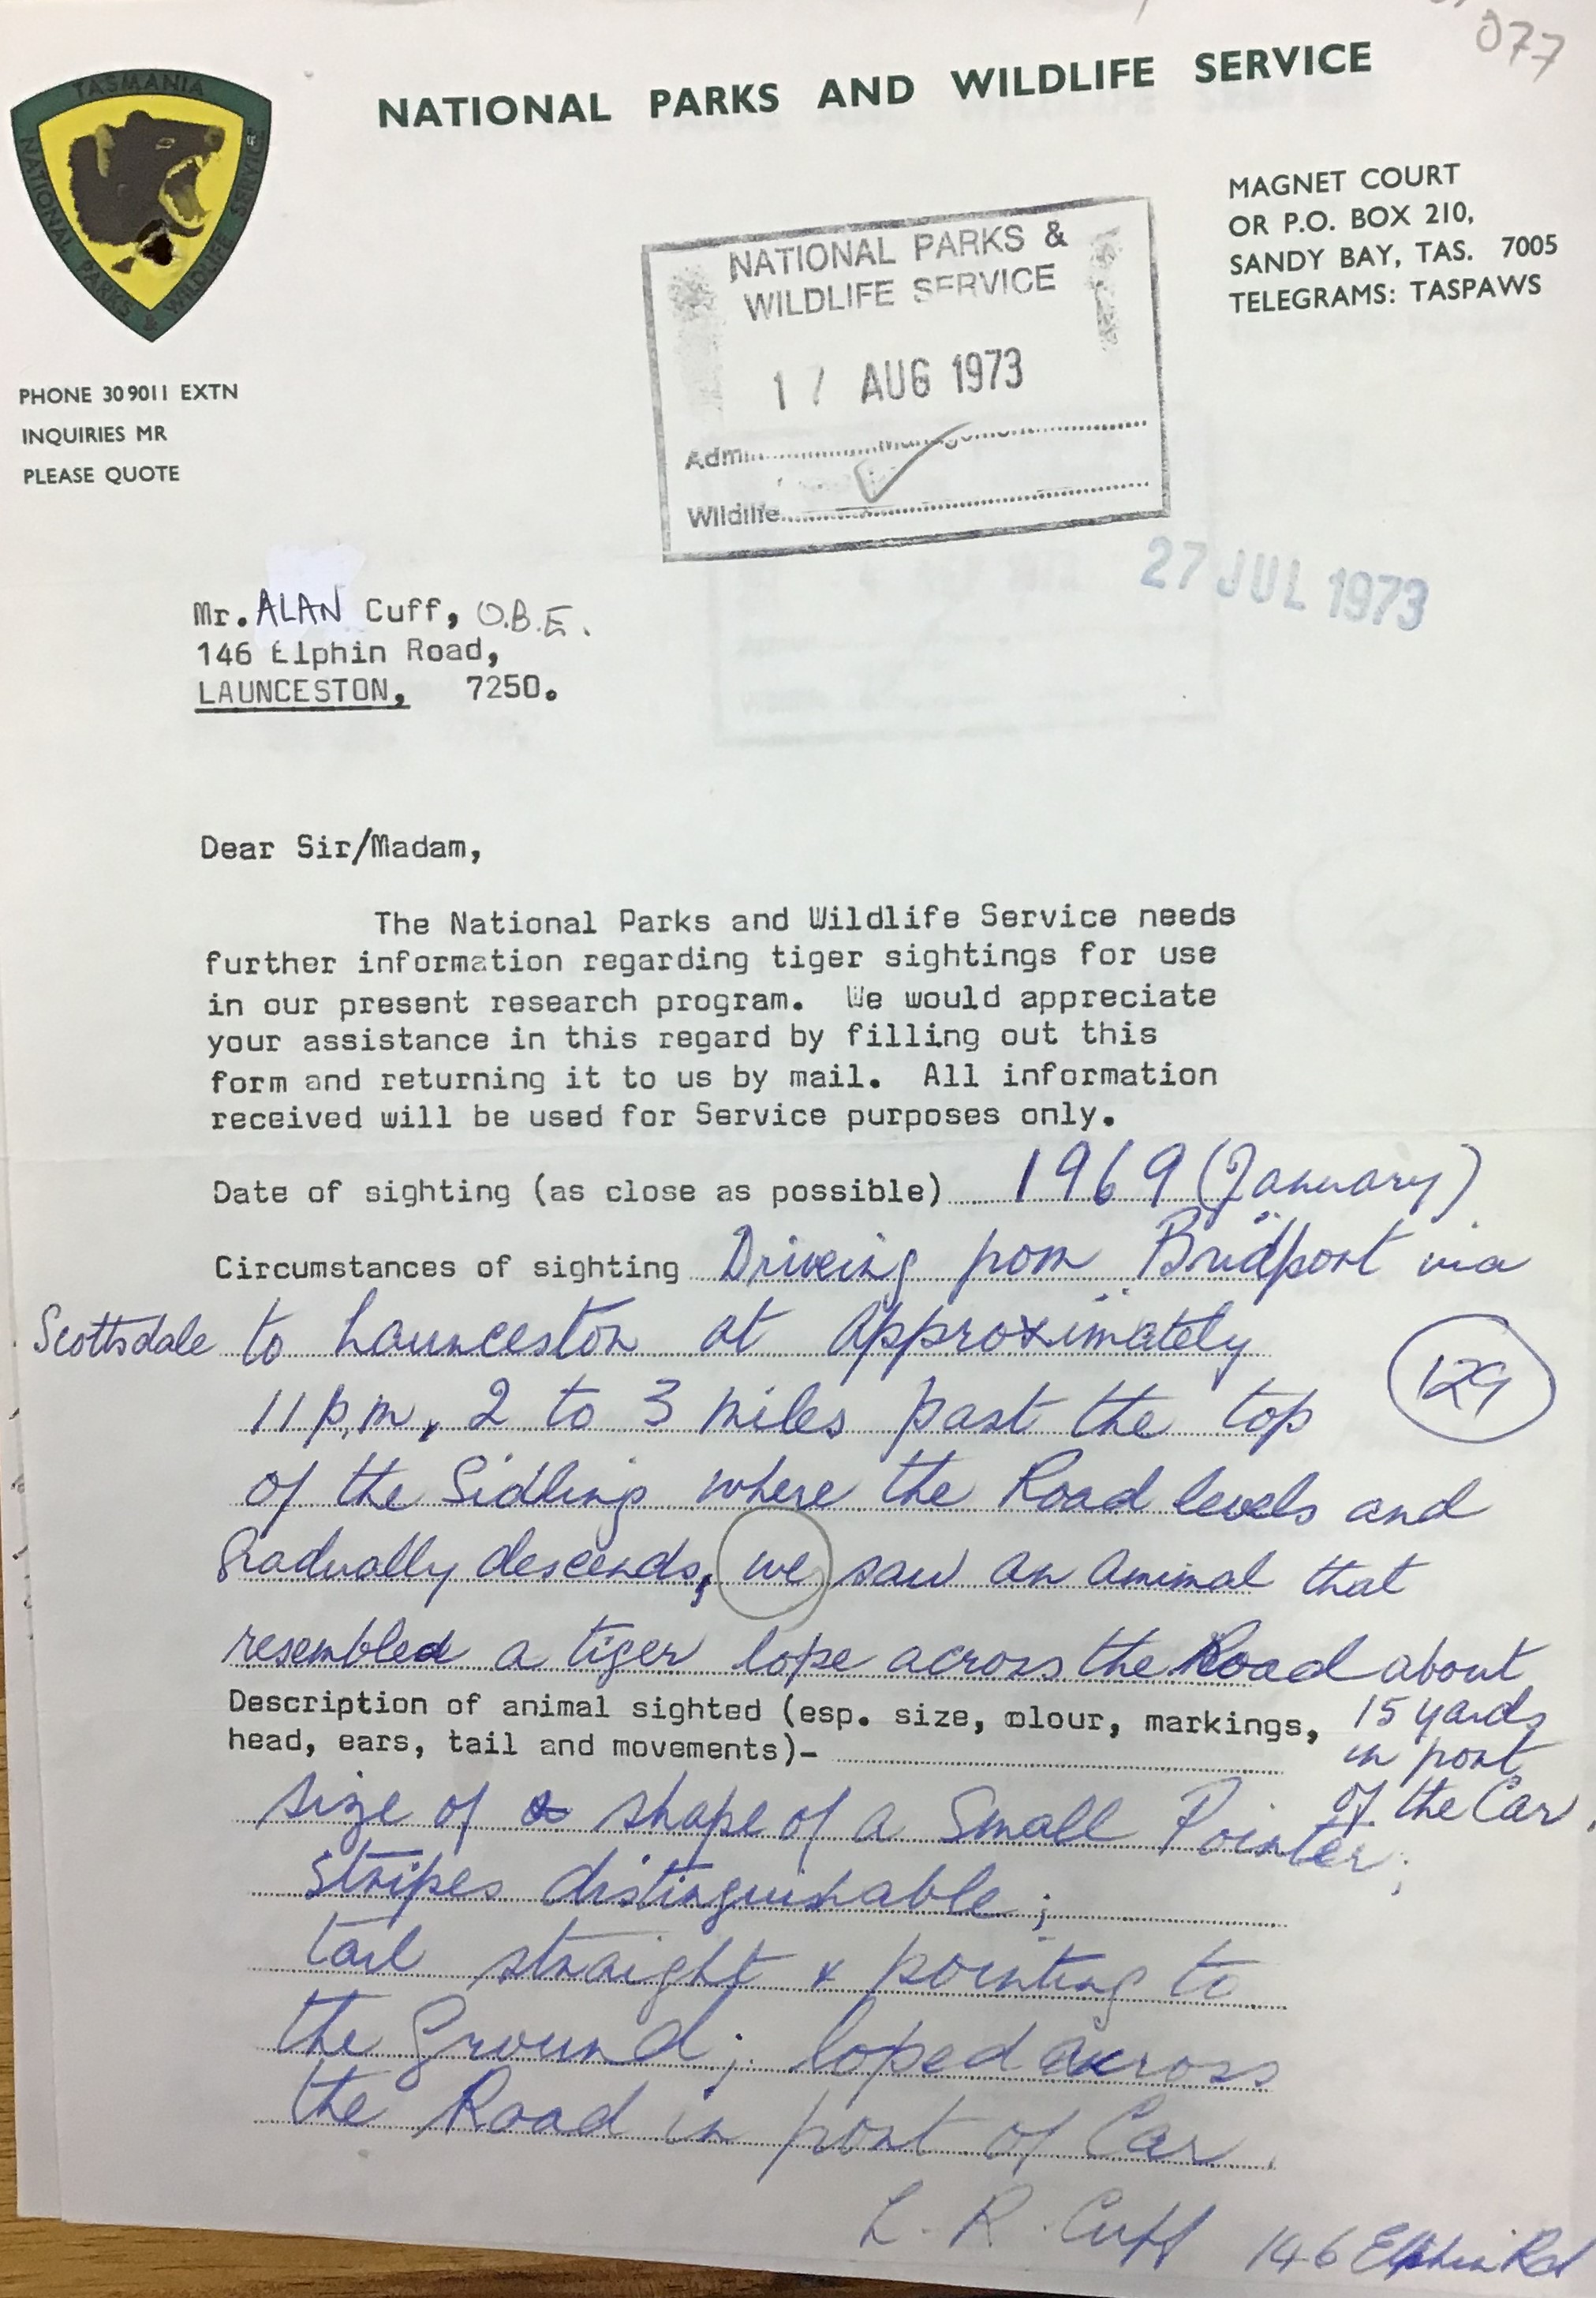 077
NATIONAL PARKS AND WILDLIFE SERVICE
TASMANIA
NATIONAL PARKS & WILDLIFE SERVICE
MAGNET COURT
OR P.O. BOX 210,
SANDY BAY, TAS. 7005
TELEGRAMS: TASPAWS
NATIONAL PARKS &
WILDLIFE SERVICE
17 AUG 1973
Admin Management
Wildlife
PHONE 309011 EXTN
INQUIRIES MR
PLEASE QUOTE
27 JUL 1973
Mr. ALAN Cuff, O.B.E.
146 Elphin Road,
LAUNCESTON, 7250.
Dear Sir/Madam,
The National Parks and Wildlife Service needs
further information regarding tiger sightings for use
in our present research program. We would appreciate
your assistance in this regard by filling out this
form and returning it to us by mail. All information
received will be used for Service purposes only.
Date of sighting (as close as possible) 1969 (January)
Circumstances of sighting Driveing from Bridport via
Scottsdale to Launceston at approximately
11 p.m, 2 to 3 miles past the top
129
of the Sidling where the Road levels and
Gradually descends, we saw an animal that
resembled a tiger lope across the Road about
15 yards
in front
of the Car.
Description of animal sighted (esp. size, colour, markings,
head, ears, tail and movements)-
size of & shape of a Small Pointer;
stripes distinguishable;
tail straight & pointing to
the Ground; loped across
the Road in front of Car.
L. R. Cuff 146 Elphin Rd